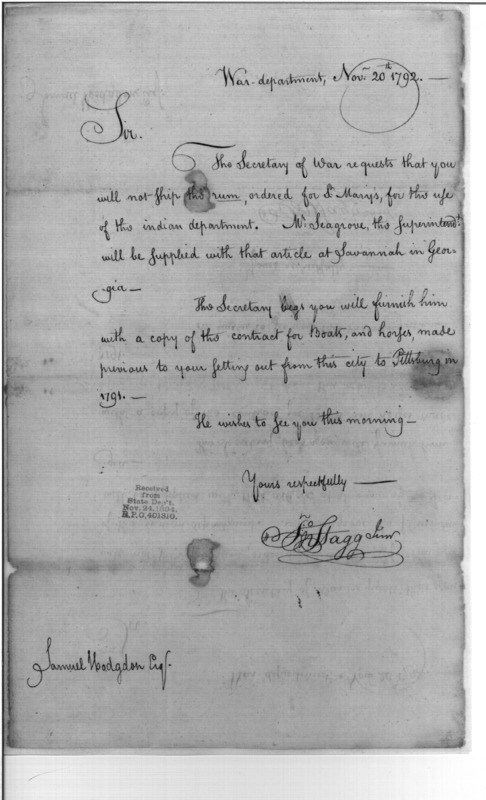 War-department, Novr. 20th 1792.—
Sir.
The Secretary of War requests that you
will not ship the rum, ordered for St. Mary's, for the use
of the indian department. Mr. Seagrove, the superintendt.
will be supplied with that article at Savannah in Geor-
gia—
The Secretary begs you will furnish him
with a copy of the contract for Boats, and horses, made
previous to your setting out from this city to Pittsburg in
1791.—
He wishes to see you this morning—
Yours respectfully—
Jno Stagg Junr
Received
from
State Dep't.
Nov. 24, 1894.
R.P.O. 401310.
Samuel Hodgdon Esqr.